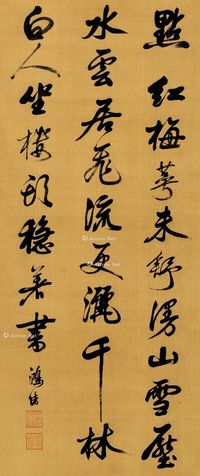 點紅梅萼未舒漫山雪壓
水雲居飛流更灑千林
白人坐樓頭穩著書 鴻緒